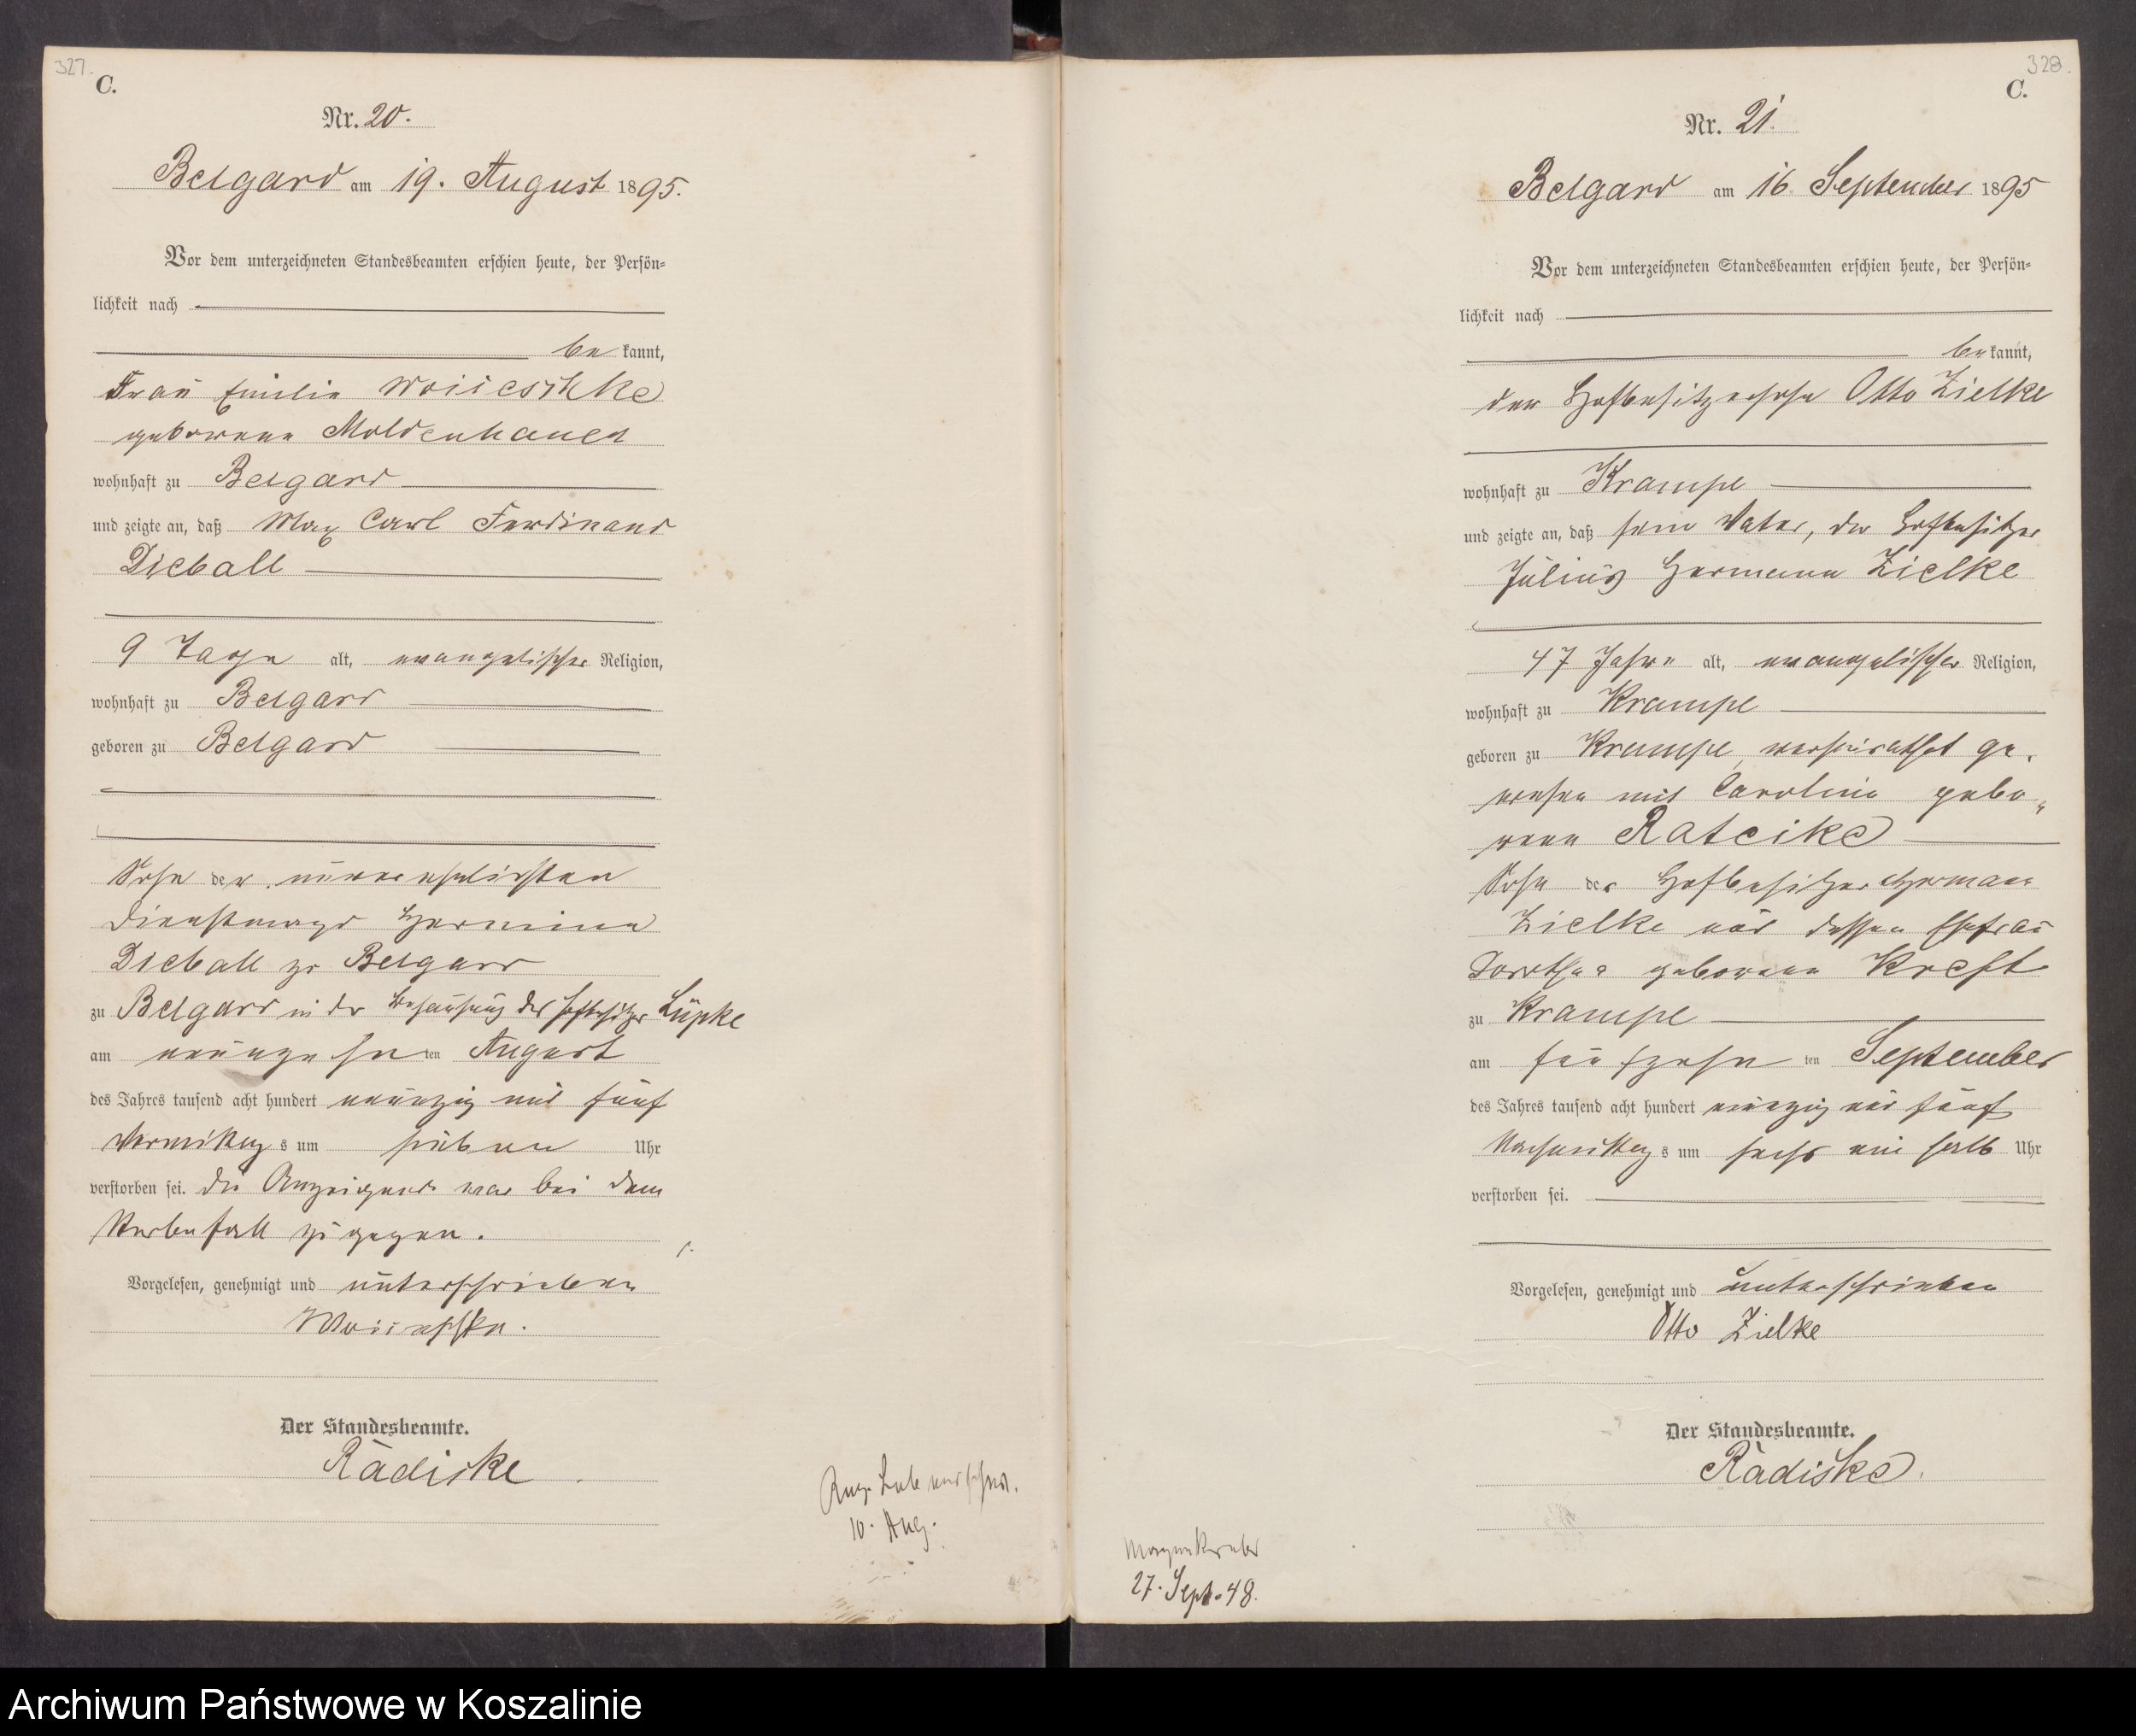 327.
C.
Nr. 20.
Belgard am 19. August 1895.
Vor dem unterzeichneten Standesbeamten erschien heute, der Persön-
lichkeit nach
be kannt,
Frau Emilie Woiieschke
geborene Moldenhauer
wohnhaft zu Belgard
und zeigte an, daß Max Carl Ferdinand
Dieball
9 Tage alt, evangelischer Religion,
wohnhaft zu Belgard
geboren zu Belgard
Sohn der unverehelichten
Dienstmagd Hermine
Dieball zu Belgard
zu Belgard in der Behausung des Hofbesitzer Lüpke
am neunzehn ten August
des Jahres tausend acht hundert neunzig und fünf
Vormittags um sieben Uhr
verstorben sei. Die Anzeigende war bei dem
Sterbefall zugegen.
Vorgelesen, genehmigt und unterschrieben
Woiieschke.
Der Standesbeamte.
Rädiske
10. Aug.
328.
C.
Nr. 21.
Belgard am 16 September 1895
Vor dem unterzeichneten Standesbeamten erschien heute, der Persön-
lichkeit nach
be kannt,
der Hofbesitzersohn Otto Zielke
wohnhaft zu Krampe
und zeigte an, daß sein Vater, der Hofbesitzer
Julius Hermann Zielke
47 Jahre alt, evangelischer Religion,
wohnhaft zu Krampe
geboren zu Krampe, verheirathet ge-
wesen mit Caroline gebo-
rene Rateike
Sohn des Hofbesitzer Herman
Zielke und dessen Ehefrau
Dorothea geborene Kreft
zu Krampe
am fünfzehn ten September
des Jahres tausend acht hundert neunzig und fünf
Nachmittags um sechs ein halb Uhr
verstorben sei.
Vorgelesen, genehmigt und unterschrieben
Otto Zielke
Der Standesbeamte.
Rädiske.
27. Sept. 48.
Archiwum Państwowe w Koszalinie